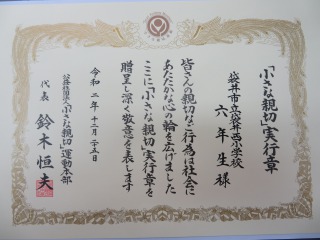 「小さな親切」実行章
袋井市立袋井西小学校
六年生様
皆さんの親切な行為は社会に
あたたかな心の輪を広げました
ここに「小さな親切」実行章を
贈呈し深く敬意を表します
令和二年十二月十五日
公益社団法人「小さな親切」運動本部
代表 鈴木恒夫